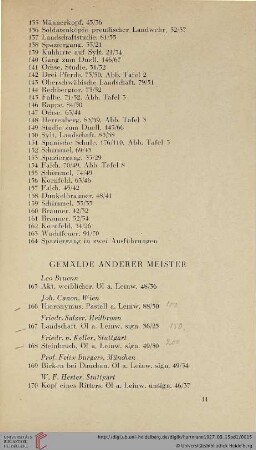 135 Männerkopf, 45/36
136 Soldatenköpfe preußischer Landwehr, 52/37
137 Landschaftstudie, 61/35
138 Spaziergang, 35/21
139 Kuhhirte auf Sylt, 21/34
140 Gang zum Duell, 146/67
141 Odise, Studie, 51/32
142 Drei Pferde, 73/50, Abb. Tafel 2
143 Oberschwäbische Landschaft, 79/51
144
145 Falbe, 71/52, Abb. Tafel 5
146 Rappe, 84/50
147 Odise, 63/44
148 Herrenberg, 83/59, Abb. Tafel 3
149 Studie zum Duell, 145/66
150 Sylt, Landschaft, 83/58
151 Spanische Schule, 176/110, Abb. Tafel 5
152 Schimmel, 69/45
153 Spaziergang, 35/29
154 Falch, 70/49, Abb. Tafel 8
155 Schimmel, 74/49
156 Kornfeld, 63/46
157 Falch, 45/42
158 Dunkelbrauner, 48/41
159 Schimmel, 35/35
160 Brauner, 42/32
161 Brauner, 52/34
162 Kornfeld, 34/26
163
164 Spaziergang in zwei Ausführungen
GEMÄLDE ANDERER MEISTER
Leo Bruenn
165 Akt, weiblicher. Öl a. Leinw. 48/36
Joh. Canon, Wien
166 Hieronymus. Pastell a. Leinw. 88/50
Friedr. Salzer, Heilbronn
167 Landschaft. Öl a. Leinw. sign. 36/25
Friedr. v. Keller, Stuttgart
168 Steinbruch. Öl a. Leinw. sign. 49/30
Prof. Feitx Bürgers, München
169 Birken bei Dachau. Öl a. Leinw. sign. 49/34
W. F. Herter, Stuttgart
170 Kopf eines Ritters. Öl a. Leinw. unsign. 46/37
11